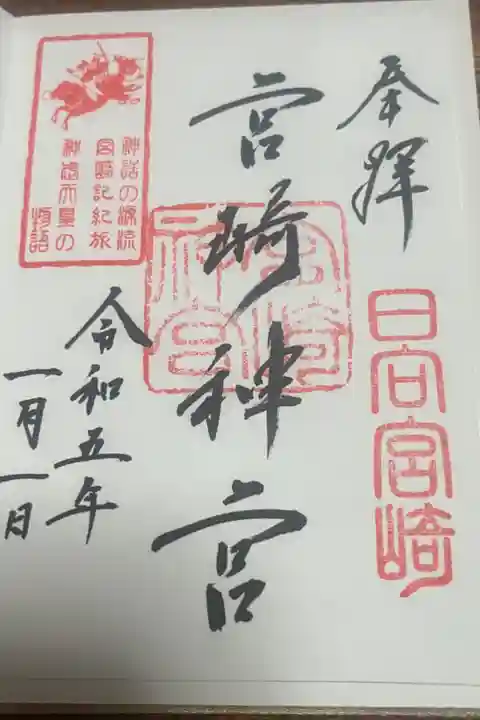 奉拝
日向宮崎
宮崎神宮
神話の源流
宮崎記紀旅
神武天皇の
物語
令和五年
一月一日